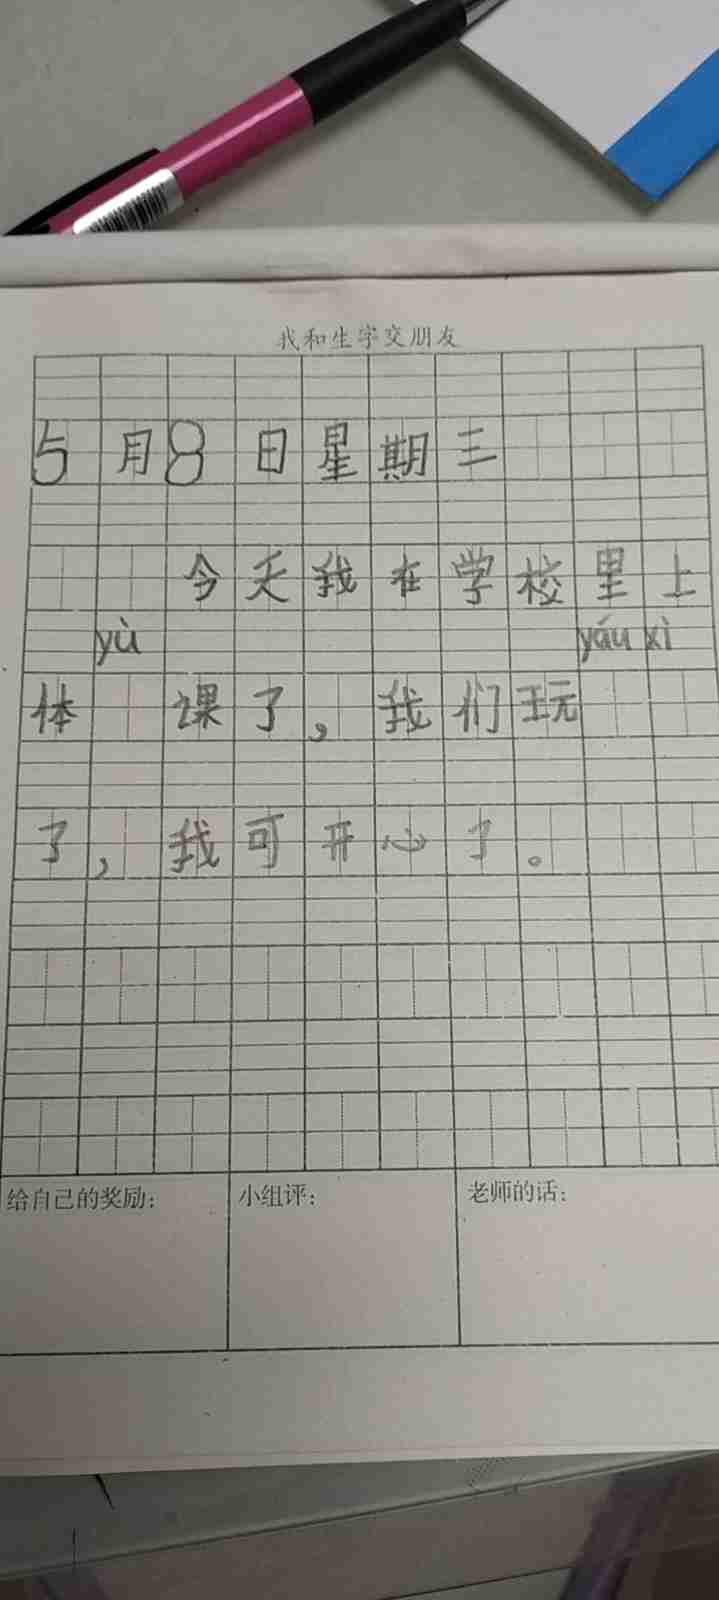 我和生字交朋友
5月8日星期三
今天我在学校里上
yù yáu xì
体 课了，我们玩
了，我可开心了。
给自己的奖励： 小组评： 老师的话：